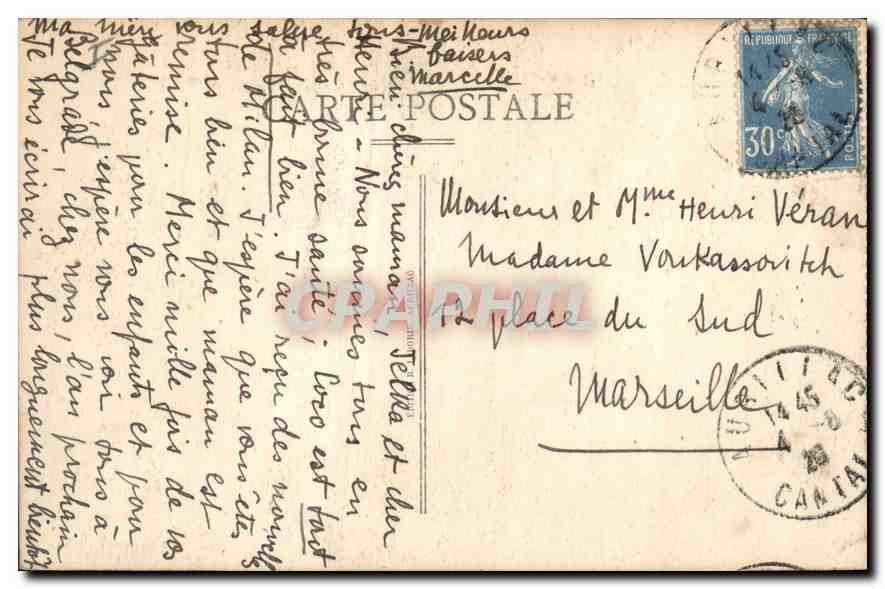 Bien chère maman, Jelka et cher
Henri - Nous sommes tous en
très bonne santé. Coco est tout
à fait bien. J'ai reçu des nouvelles
de Milan. J'espère que vous êtes
tous bien et que maman est
remise. Merci mille fois de vos
gâteries pour les enfants et pour
nous. J'espère vous voir tous à
Belgrade, chez nous, l'an prochain
Je vous écrirai plus longuement bientôt
Ma mère vous salue tous - Meilleurs
baisers
Marcelle
CARTE POSTALE
Monsieur et Mme Henri Véran
Madame Voukassovitch
12 place du Sud
Marseille
REPUBLIQUE FRANÇAISE
30c
POSTES
14 45
CANTAL
CARPHIL